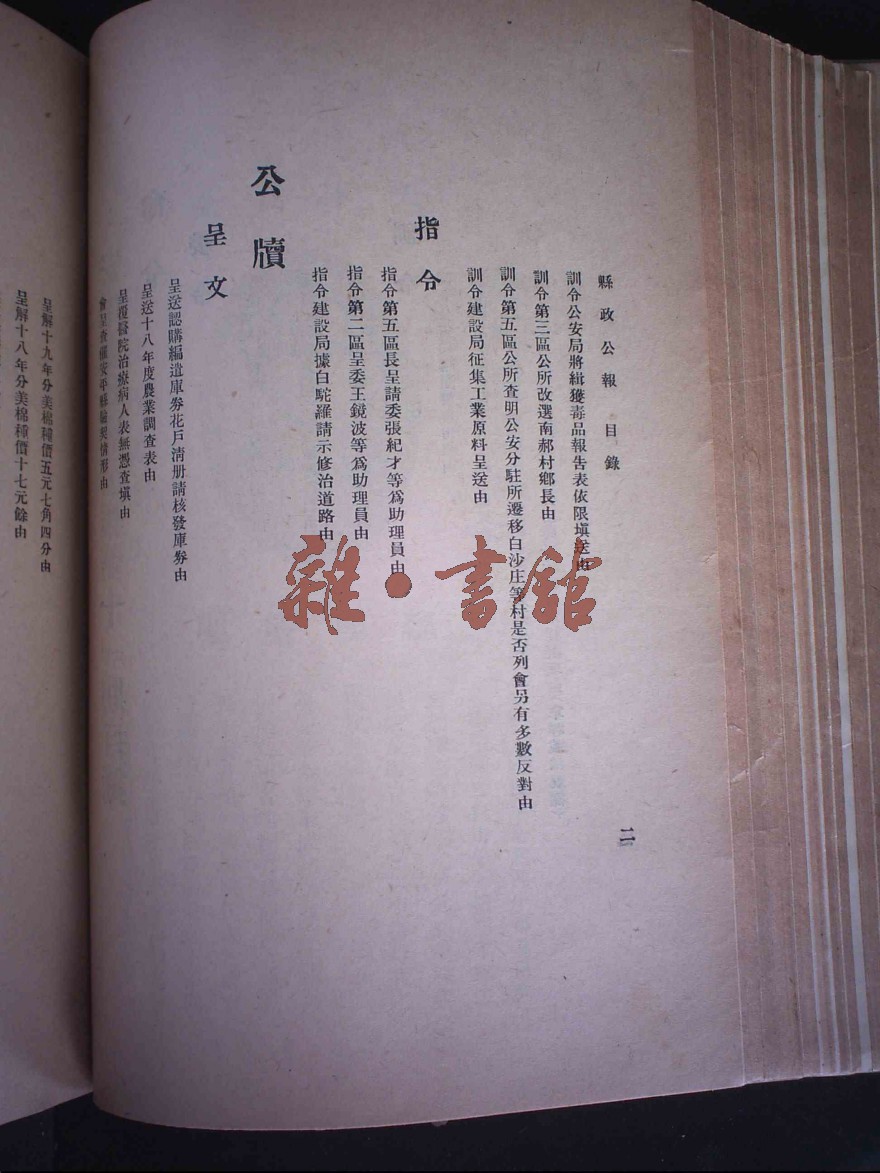 縣政公報 目錄
二
訓令公安局將緝獲毒品報告表依限塡送由
訓令第三區公所改選南郝村鄉長由
訓令第五區公所查明公安分駐所遷移白沙庄等村是否列會另有多數反對由
訓令建設局征集工業原料呈送由
指令
指令第五區長呈請委張紀才等爲助理員由
指令第二區呈委王鏡波等爲助理員由
指令建設局據白駝羅請示修治道路由
公牘
呈文
呈送認購編遣庫券花戶淸册請核發庫券由
呈送十八年度農業調查表由
呈覆醫院治療病人表無憑查塡由
會呈查催安平縣驗契情形由
呈解十九年分美棉種價五元七角四分由
呈解十八年分美棉種價十七元餘由
雜·書館